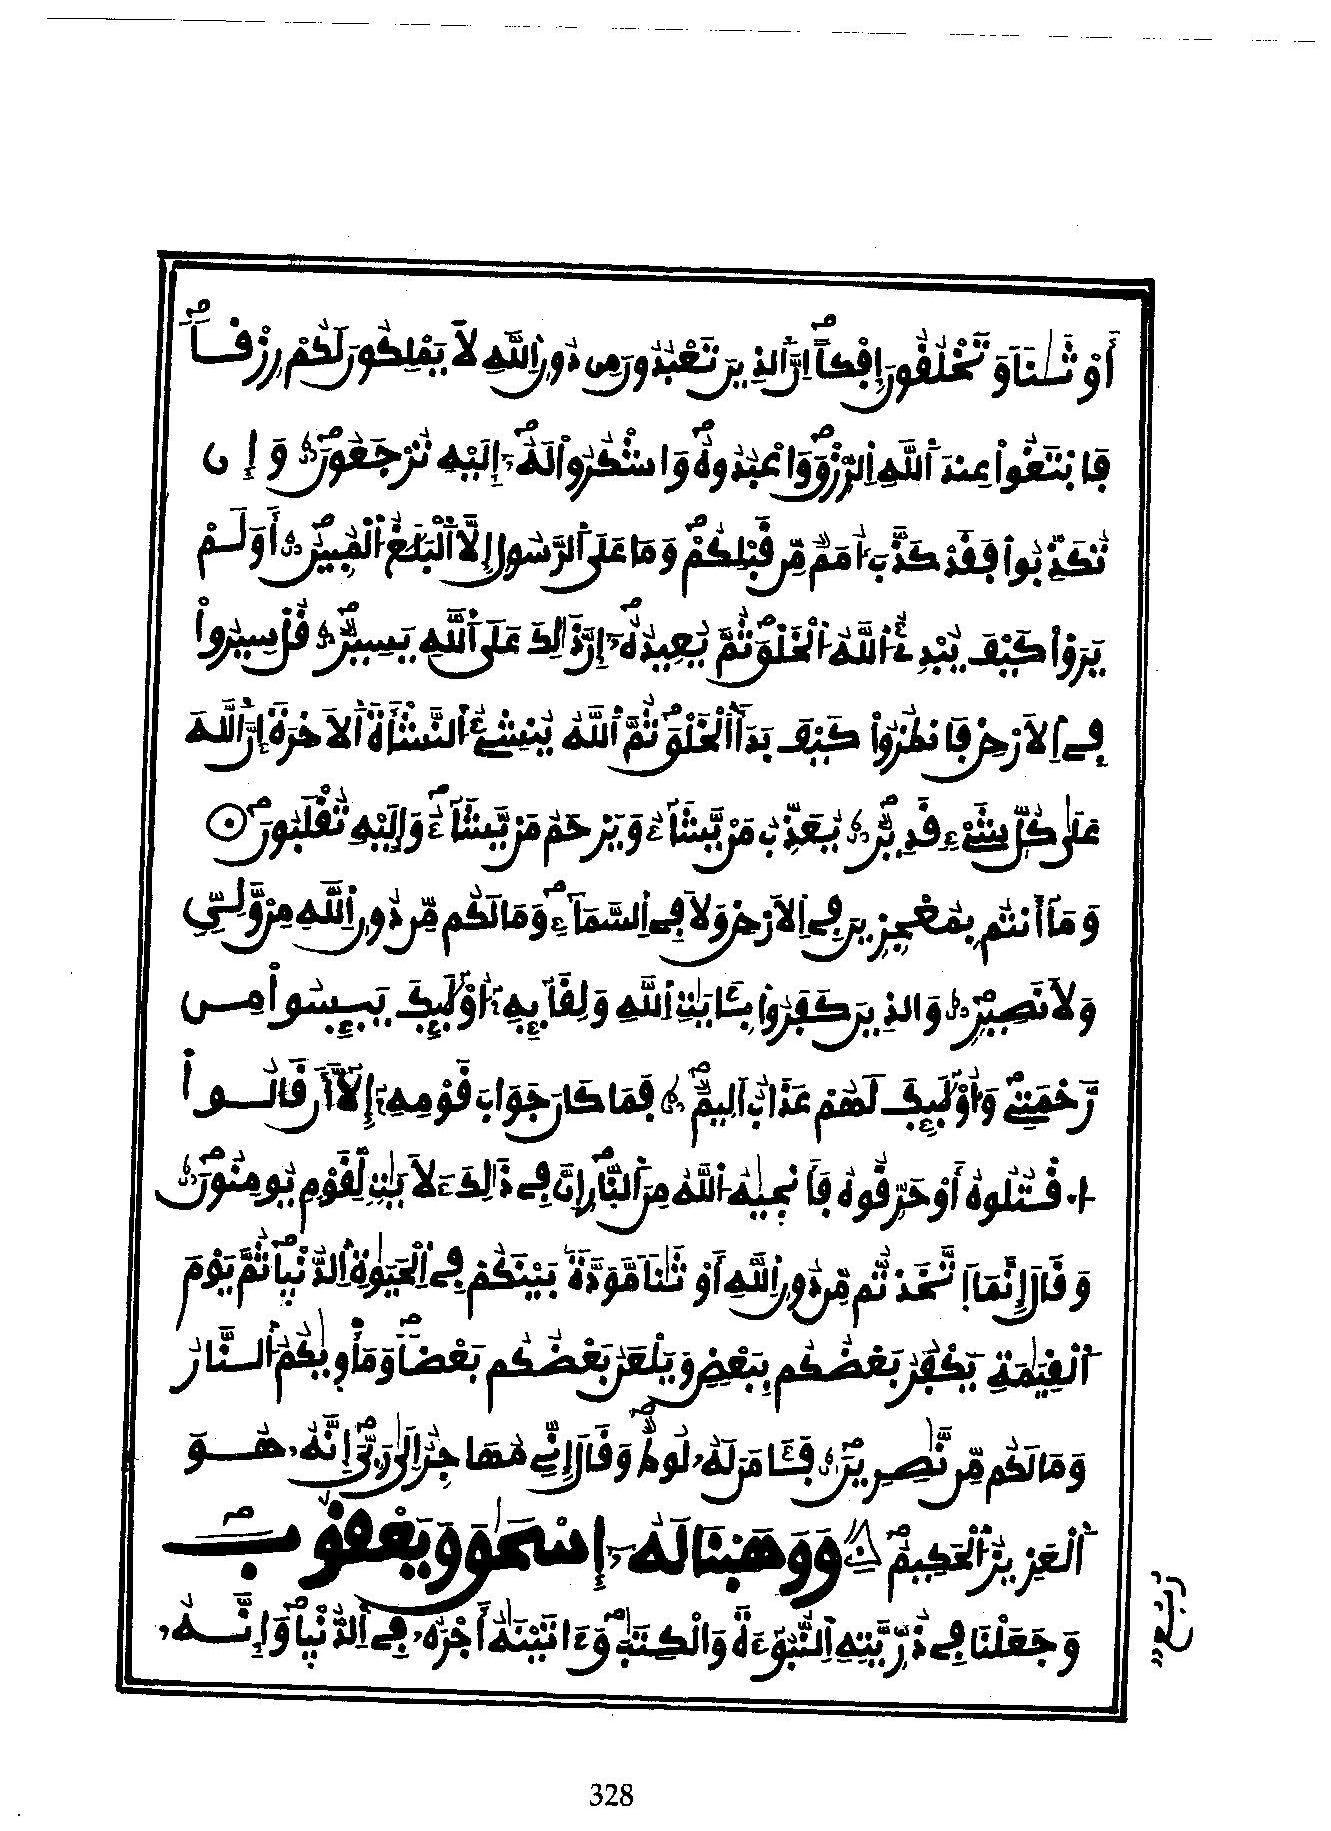 أَوْثَٰناً وَتَخْلُقُونَ إِفْكاًۖ اِنَّ اَلذِينَ تَعْبُدُونَ مِن دُونِ اِللَّهِ لَا يَمْلِكُونَ لَكُمْ رِزْقاًۖ
فَابْتَغُواْ عِندَ اَللَّهِ اِلرِّزْقَۖ وَاعْبُدُوهُۖ وَاشْكُرُواْ لَهُۥۖ إِلَيْهِ تُرْجَعُونَۖ وَإِن
تُكَذِّبُواْ فَقَدْ كَذَّبَ أُمَمٌ مِّن قَبْلِكُمْۖ وَمَا عَلَى اَلرَّسُولِ إِلَّا اَلْبَلَٰغُ اُلْمُبِينُۖ أَوَلَمْ
يَرَوْاْ كَيْفَ يُبْدِئُ اُللَّهُ اُلْخَلْقَۖ ثُمَّ يُعِيدُهُۥۖ إِنَّ ذَٰلِكَ عَلَى اَللَّهِ يَسِيرٌۖ قُلْ سِيرُواْ
فِي اِلَارْضِ فَانظُرُواْ كَيْفَ بَدَأَ اَلْخَلْقَۖ ثُمَّ اَللَّهُ يُنشِئُ اُلنَّشْأَةَ اَلَاخِرَةَۖ إِنَّ اَللَّهَ
عَلَىٰ كُلِّ شَےْءٍ قَدِيرٌۖ يُعَذِّبُ مَنْ يَّشَآءُ وَيَرْحَمُ مَنْ يَّشَآءُۖ وَإِلَيْهِ تُقْلَبُونَۖ
وَمَآ أَنتُم بِمُعْجِزِينَ فِي اِلَارْضِ وَلَا فِي اِلسَّمَآءِۖ وَمَا لَكُم مِّن دُونِ اِللَّهِ مِنْ وَّلِيٍّ
وَلَا نَصِيرٍۖ وَالذِينَ كَفَرُواْ بِـَٔايَٰتِ اِللَّهِ وَلِقَآئِهِۦٓ أُوْلَٰٓئِكَ يَئِسُواْ مِن
رَّحْمَتِےۖ وَأُوْلَٰٓئِكَ لَهُمْ عَذَابٌ اَلِيمٌۖ فَمَا كَانَ جَوَابَ قَوْمِهِۦٓ إِلَّآ أَن قَالُواْ
اُ۟قْتُلُوهُ أَوْ حَرِّقُوهُ فَأَنج۪يٰهُ اُللَّهُ مِنَ اَلنَّارِۖ إِنَّ فِي ذَٰلِكَ ءَلَايَٰتٍ لِّقَوْمٍ يُومِنُونَۖ
وَقَالَ إِنَّمَا اَ۪تَّخَذتُّم مِّن دُونِ اِللَّهِ أَوْثَٰناً مَّوَدَّةً بَيْنَكُمْ فِي اِلْحَيَوٰةِ اِلدُّنْي۪اۖ ثُمَّ يَوْمَ
اَلْقِيَٰمَةِ يَكْفُرُ بَعْضُكُم بِبَعْضٍ وَيَلْعَنُ بَعْضُكُم بَعْضاًۖ وَمَأْو۪يٰكُمُ اُلنَّارُ
وَمَا لَكُم مِّن نَّٰصِرِينَۖ فَـَٔامَنَ لَهُۥ لُوطٌۖ وَقَالَ إِنِّي مُهَاجِرٌ اِلَىٰ رَبِّيَۖ إِنَّهُۥ هُوَ
اَلْعَزِيزُ اُلْحَكِيمُۖ وَوَهَبْنَا لَهُۥٓ إِسْحَٰقَ وَيَعْقُوبَۖ
وَجَعَلْنَا فِي ذُرِّيَّتِهِ اِلنُّبُوٓءَةَ وَالْكِتَٰبَۖ وَءَاتَيْنَٰهُ أَجْرَهُۥ فِي اِلدُّنْي۪اۖ وَإِنَّهُۥ
رُبُع
328